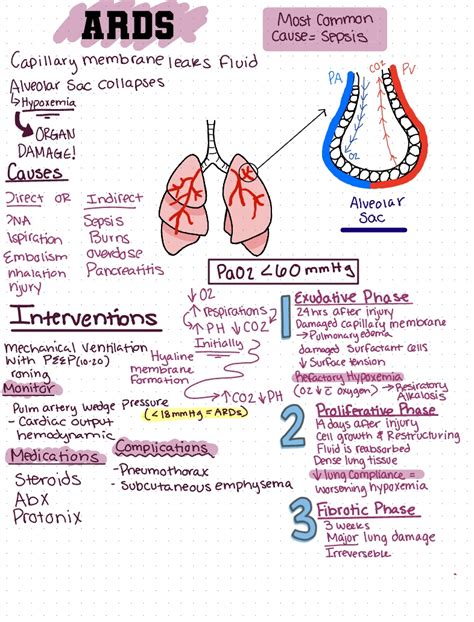 ARDS
Most Common
Cause= Sepsis
Capillary membrane leaks fluid
Alveolar Sac collapses
↳Hypoxemia
↳ORGAN
DAMAGE!
PA
CO2
PV
O2
Alveolar
Sac
Causes
Direct OR Indirect
PNA
Sepsis
Aspiration
Burns
Embolism
overdose
Inhalation
Pancreatitis
injury
PaO2 <60 mmHg
↓O2
↑respirations
↑PH ↓CO2
Initially
Hyaline
membrane
formation
→↑CO2 ↓PH
Interventions
mechanical ventilation
with PEEP(10-20)
Proning
Monitor
Pulm artery wedge pressure
(<18mmHg = ARDs)
- Cardiac output
hemodynamic
Medications
Steroids
Abx
Protonix
Complications
-Pneumothorax
- Subcutaneous emphysema
1 Exudative Phase
24hrs after injury
Damaged capillary membrane
→Pulmonary edema
damaged Surfactant cells
↓ Surface tension
Refactory Hypoxemia
(O2 ↓ c̄ oxygen) → Respiratory
Alkalosis
2 Proliferative Phase
14 days after injury
Cell growth & Restructuring
Fluid is reabsorbed
Dense lung tissue
↓ lung Compliance =
worsening hypoxemia
3 Fibrotic Phase
>3 weeks
Major lung damage
Irreverseble